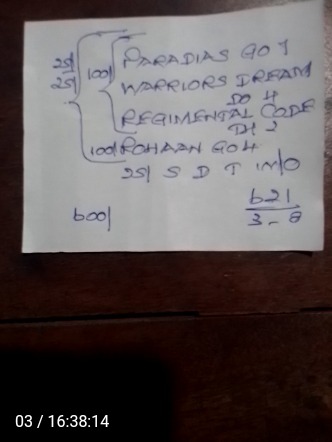 25/ 25/ 100/ PARADIAS GO 1
WARRIORS DREAM
DO 4
REGIMENTAL CODE
DH 2
100/ ROHAAN GO 4
25/ S D T
600/ 621
3 - 8
03 / 16:38:14